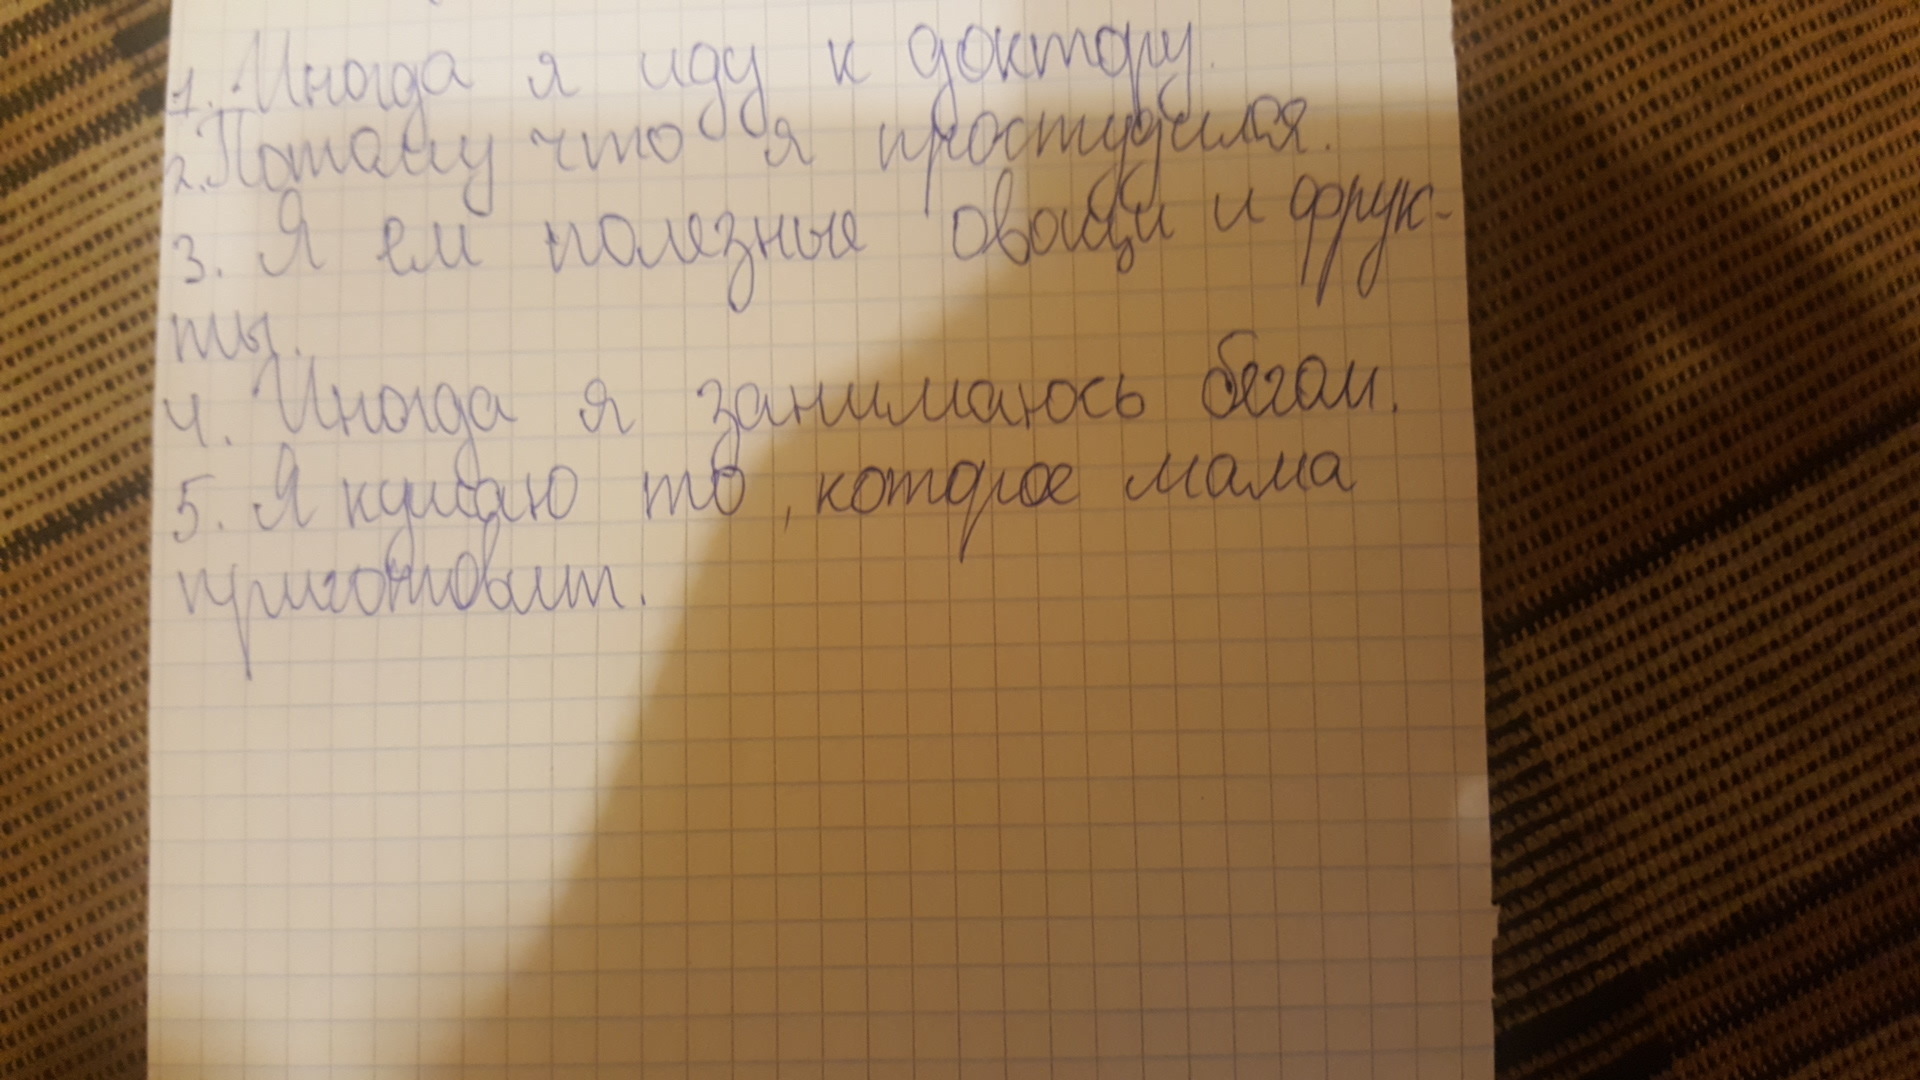 1. Иногда я иду к доктору.
2. Потому что я простудился.
3. Я ем полезные овощи и фрук-
ты.
4. Иногда я занимаюсь бегом.
5. Я кушаю то, которое мама
приготовит.